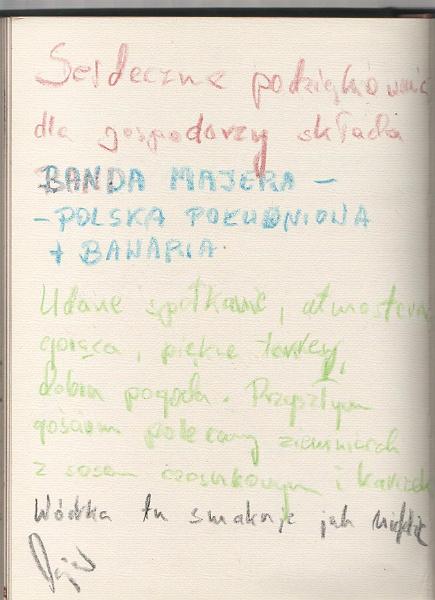 Serdeczne podziękowanie
dla gospodarzy składa
BANDA MAJERA -
- POLSKA POŁUDNIOWA
+ BAWARIA.
Udane spotkanie, atmosfera
gorąca, piękne tereny,
dobra pogoda. Przyszłym
gościom polecamy ziemniaczki
z sosem czosnkowym i karczek
Wódka tu smakuje jak nigdzie